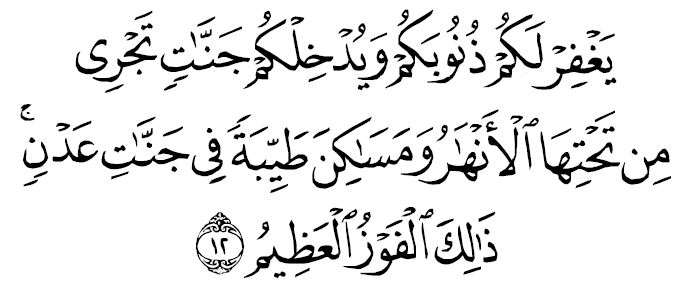 يَغْفِرْ لَكُمْ ذُنُوبَكُمْ وَيُدْخِلْكُمْ جَنَّٰتٍ تَجْرِى
مِن تَحْتِهَا ٱلْأَنْهَٰرُ وَمَسَٰكِنَ طَيِّبَةً فِى جَنَّٰتِ عَدْنٍ ۚ
ذَٰلِكَ ٱلْفَوْزُ ٱلْعَظِيمُ ١٢